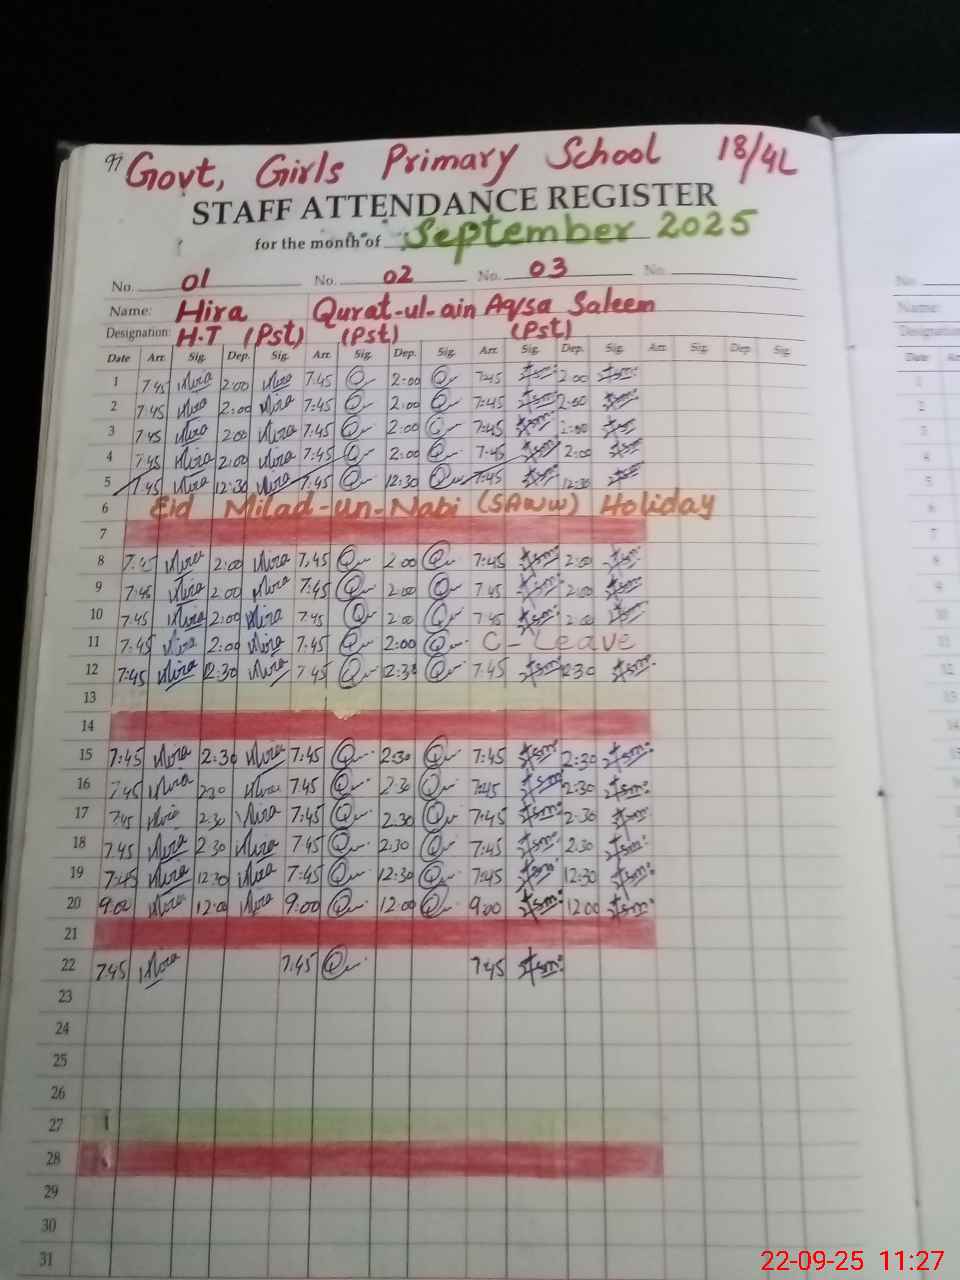 97 Govt, Girls Primary School 18/4L
STAFF ATTENDANCE REGISTER
for the month of September 2025
No. 01 No. 02 No. 03 No.
Name: Hira Qurat-ul-ain Aqsa Saleem
Designation: H.T (Pst) (Pst) (Pst)
Date Arr. Sig. Dep. Sig. Arr. Sig. Dep. Sig. Arr. Sig. Dep. Sig. Arr. Sig. Dep. Sig.
1 7:45 Hira 2:00 Hira 7:45 2:00 7:45 2:00
2 7:45 Hira 2:00 Hira 7:45 2:00 7:45 2:00
3 7:45 Hira 2:00 Hira 7:45 2:00 7:45 2:00
4 7:45 Hira 2:00 Hira 7:45 2:00 7:45 2:00
5 7:45 Hira 12:30 Hira 7:45 12:30 7:45 12:30
6 Eid Milad-un-Nabi (SAWW) Holiday
7
8 7:45 Hira 2:00 Hira 7:45 2:00 7:45 2:00
9 7:45 Hira 2:00 Hira 7:45 2:00 7:45 2:00
10 7:45 Hira 2:00 Hira 7:45 2:00 7:45 2:00
11 7:45 Hira 2:00 Hira 7:45 2:00 C-Leave
12 7:45 Hira 12:30 Hira 7:45 12:30 7:45 12:30
13
14
15 7:45 Hira 2:30 Hira 7:45 2:30 7:45 2:30
16 7:45 Hira 2:30 Hira 7:45 2:30 7:45 2:30
17 7:45 Hira 2:30 Hira 7:45 2:30 7:45 2:30
18 7:45 Hira 2:30 Hira 7:45 2:30 7:45 2:30
19 7:45 Hira 12:30 Hira 7:45 12:30 7:45 12:30
20 9:00 Hira 12:00 Hira 9:00 12:00 9:00 12:00
21
22 7:45 Hira 7:45 7:45
23
24
25
26
27
28
29
30
31
No.
Name:
Designation
Date
22-09-25 11:27